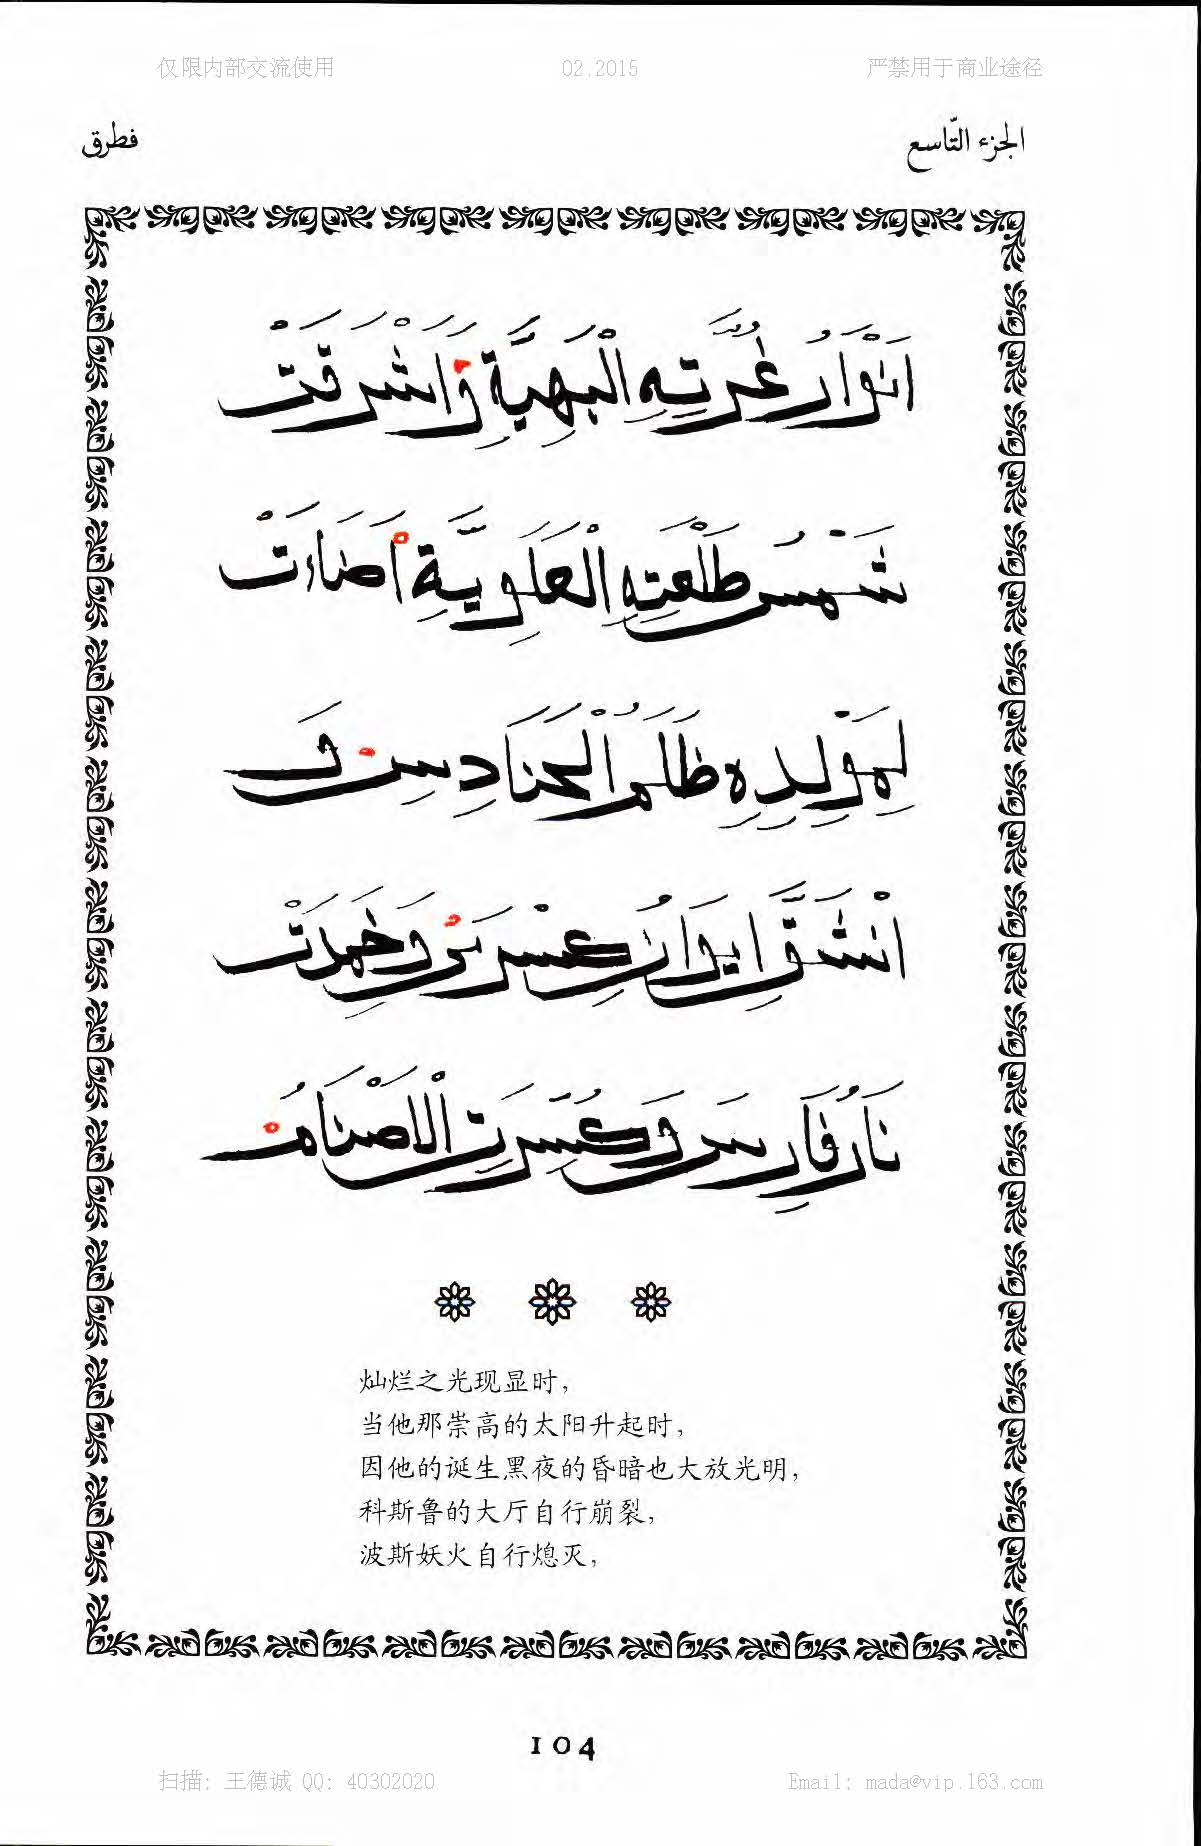 仅限内部交流使用 02.2015 严禁用于商业途径
الجزء التّاسع فطرق
اَنْوَارُ غُرَّتِهِ الْبَهِيَّةِ وَاَشْرَقَتْ
شَمْسُ طَلْعَتِهِ الْعَلَوِيَّةِ اَضَاءَتْ
لِمَوْلِدِهِ ظَلَمُ الْحَنَادِسِ وَ
انْشَقَّ اِيوَانُ كِسْرَىٰ وَخَمِدَتْ
نَارُ فَارِسَ وَكُسِّرَتِ الْاَصْنَامُ
灿烂之光现显时，
当他那崇高的太阳升起时，
因他的诞生黑夜的昏暗也大放光明，
科斯鲁的大厅自行崩裂，
波斯妖火自行熄灭，
104
扫描: 王德诚 QQ: 40302020 Email: mada@vip.163.com